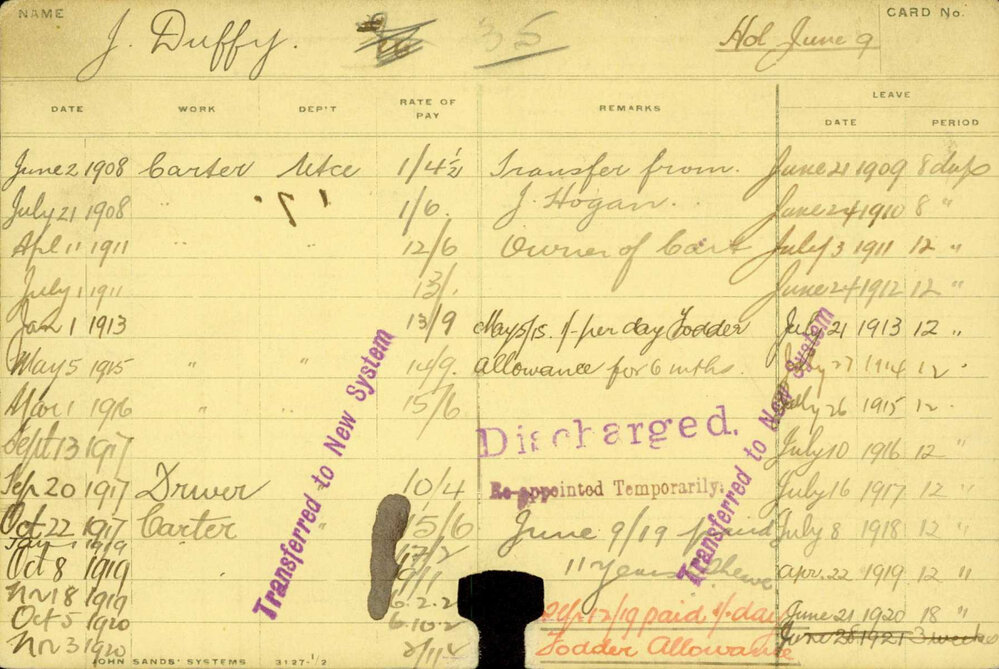 NAME
J. Duffy.
35
Hol June 9
CARD No.
DATE WORK DEP'T RATE OF PAY REMARKS LEAVE
DATE PERIOD
June 2 1908 Carter Mtce 1/4½ Transfer from June 21 1909 8 days
July 21 1908 " " 1/6. J. Hogan. June 24 1910 8 "
Apl 11 1911 " " 12/6 Owner of Cart July 3 1911 12 "
July 1 1911 13/. June 24 1912 12 "
Jan 1 1913 13/9 May 5/15. 1/- per day Fodder July 21 1913 12 "
May 5 1915 " " 14/9. Allowance for 6 mths. July 27 1914 12 "
Mar 1 1916 " " 15/6 July 26 1915 12 "
Sept 13 1917 Discharged. July 10 1916 12 "
Sep 20 1917 Driver 10/4 Re-appointed Temporarily. July 16 1917 12 "
Oct 22 1917 Carter " 15/6 June 9/19 paid July 8 1918 12 "
Jan 1 1919 17/2
Oct 8 1919 11 years Apr. 22 1919 12 "
Nov 18 1919 6.2.2 Sep 12/19 paid 1/- day June 21 1920 18 "
Oct 5 1920 6.10.2 Fodder Allowance June 28 1921 3 weeks
Nov 3 1920
Transferred to New System
Transferred to New System
JOHN SANDS' SYSTEMS 3127-1/2